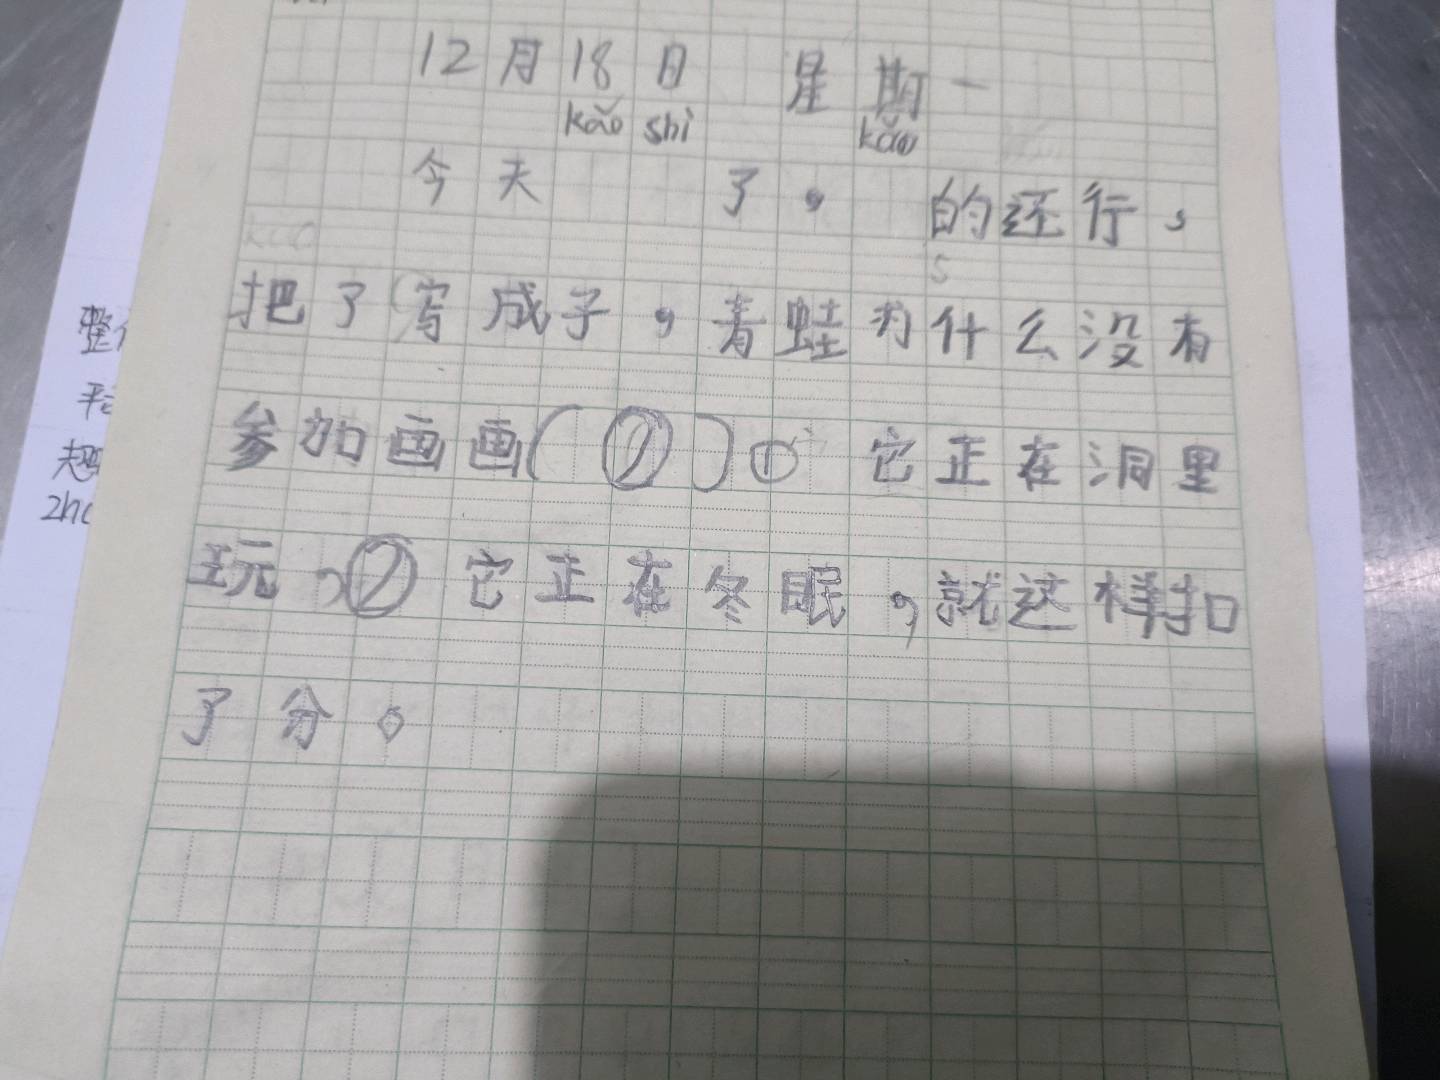 12月18日 星期一
kǎo shì kǎo
今天 了， 的还行，
把了写成子，青蛙为什么没有
参加画画（②）① 它正在洞里
玩，② 它正在冬眠，就这样扣
了分。
整